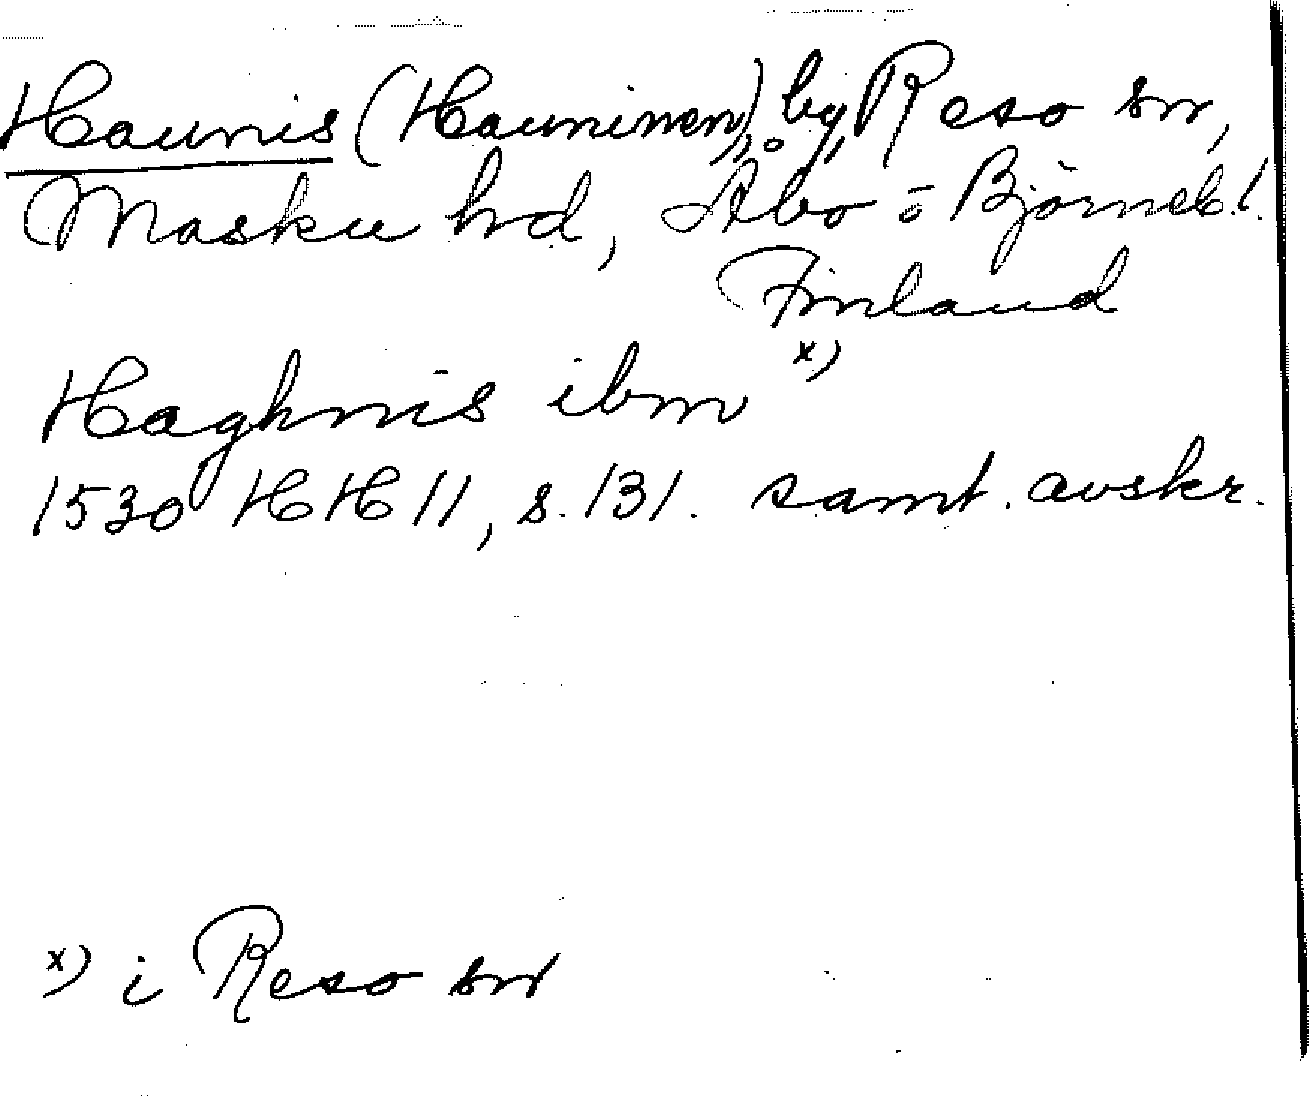 Haunis (Hauninen), by, Reso sn,
Masku hd, Åbo ō Björneb. l.
Finland
Haghnis ibm x)
1530 HH 11, s. 131. samt. avskr.
x) i Reso sn